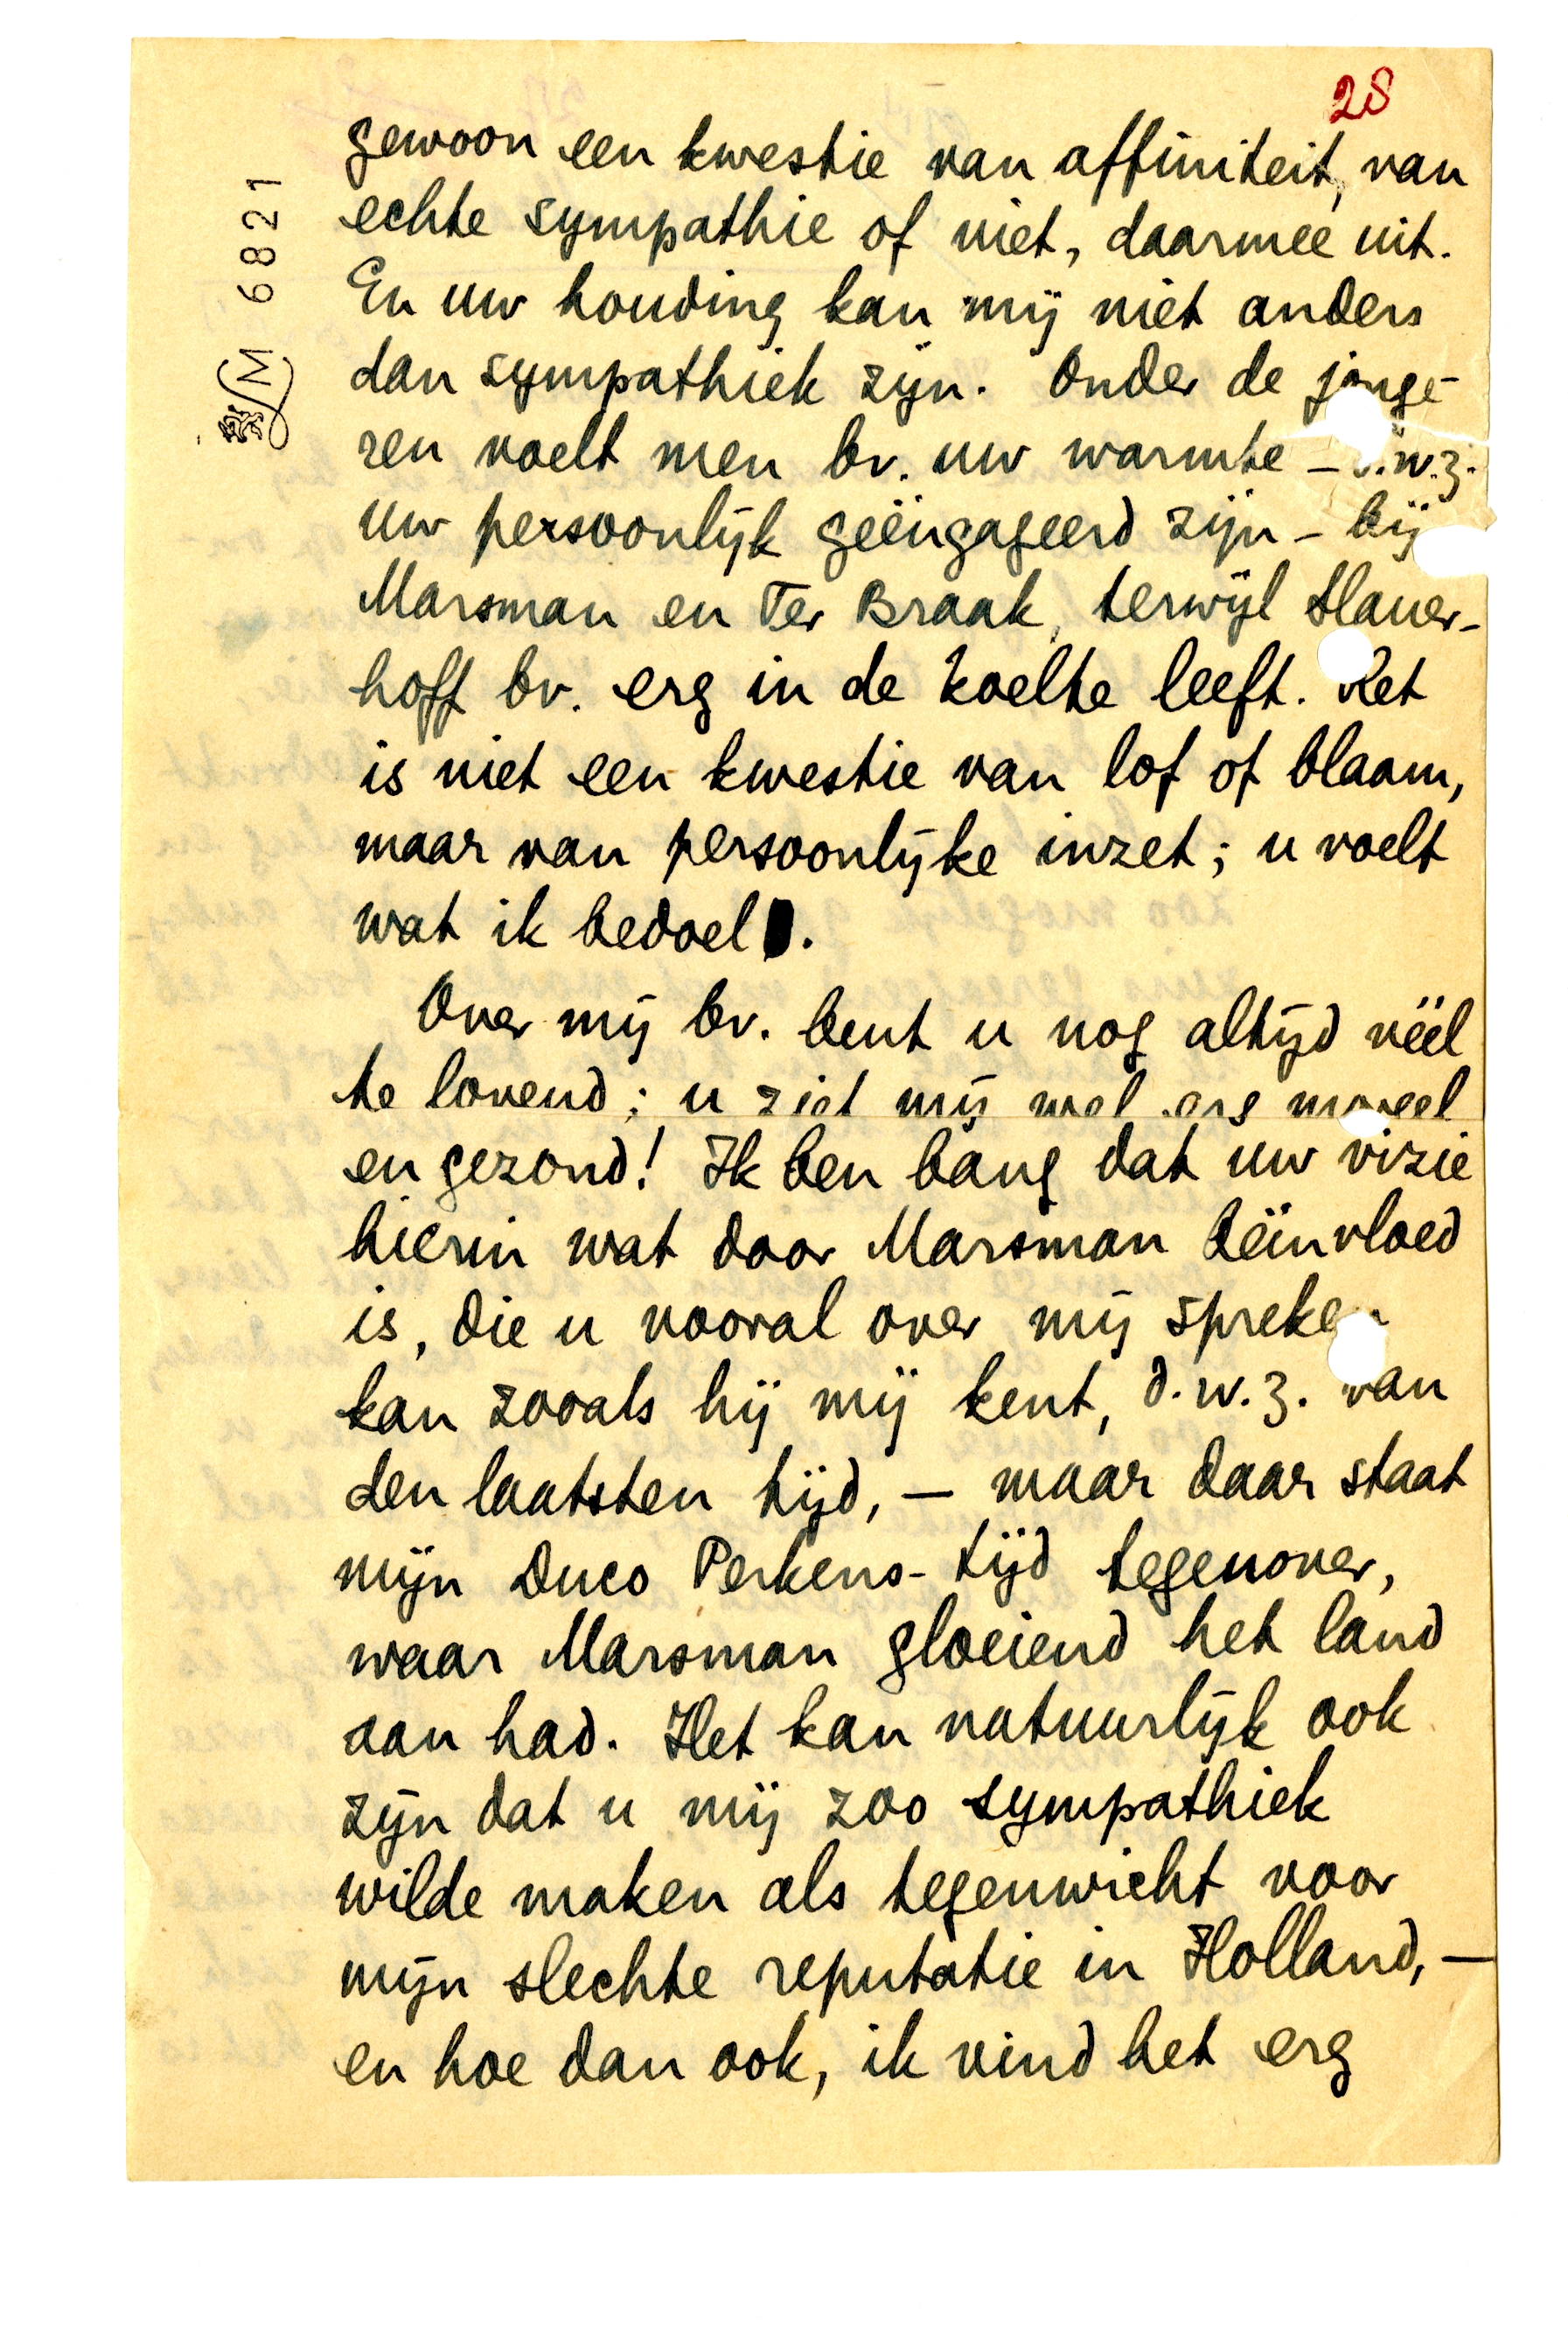 28
LM 6821
gewoon een kwestie van affiniteit, van
echte sympathie of niet, daarmee uit.
En uw houding kan mij niet anders
dan sympathiek zijn. Onder de jonge-
ren voelt men bv. uw warmte – d.w.z.
uw persoonlijk geëngageerd zijn – bij
Marsman en Ter Braak, terwijl Slauer-
hoff bv. erg in de koelte leeft. Het
is niet een kwestie van lof of blaam,
maar van persoonlijke inzet; u voelt
wat ik bedoel.
Over mij bv. bent u nog altijd véél
te lovend; u ziet mij wel erg moreel
en gezond! Ik ben bang dat uw vizie
hierin wat door Marsman beïnvloed
is, die u vooral over mij spreken
kan zooals hij mij kent, d.w.z. van
den laatsten tijd, — maar daar staat
mijn Duco Perkens-tijd tegenover,
waar Marsman gloeiend het land
aan had. Het kan natuurlijk ook
zijn dat u mij zoo sympathiek
wilde maken als tegenwicht voor
mijn slechte reputatie in Holland, —
en hoe dan ook, ik vind het erg